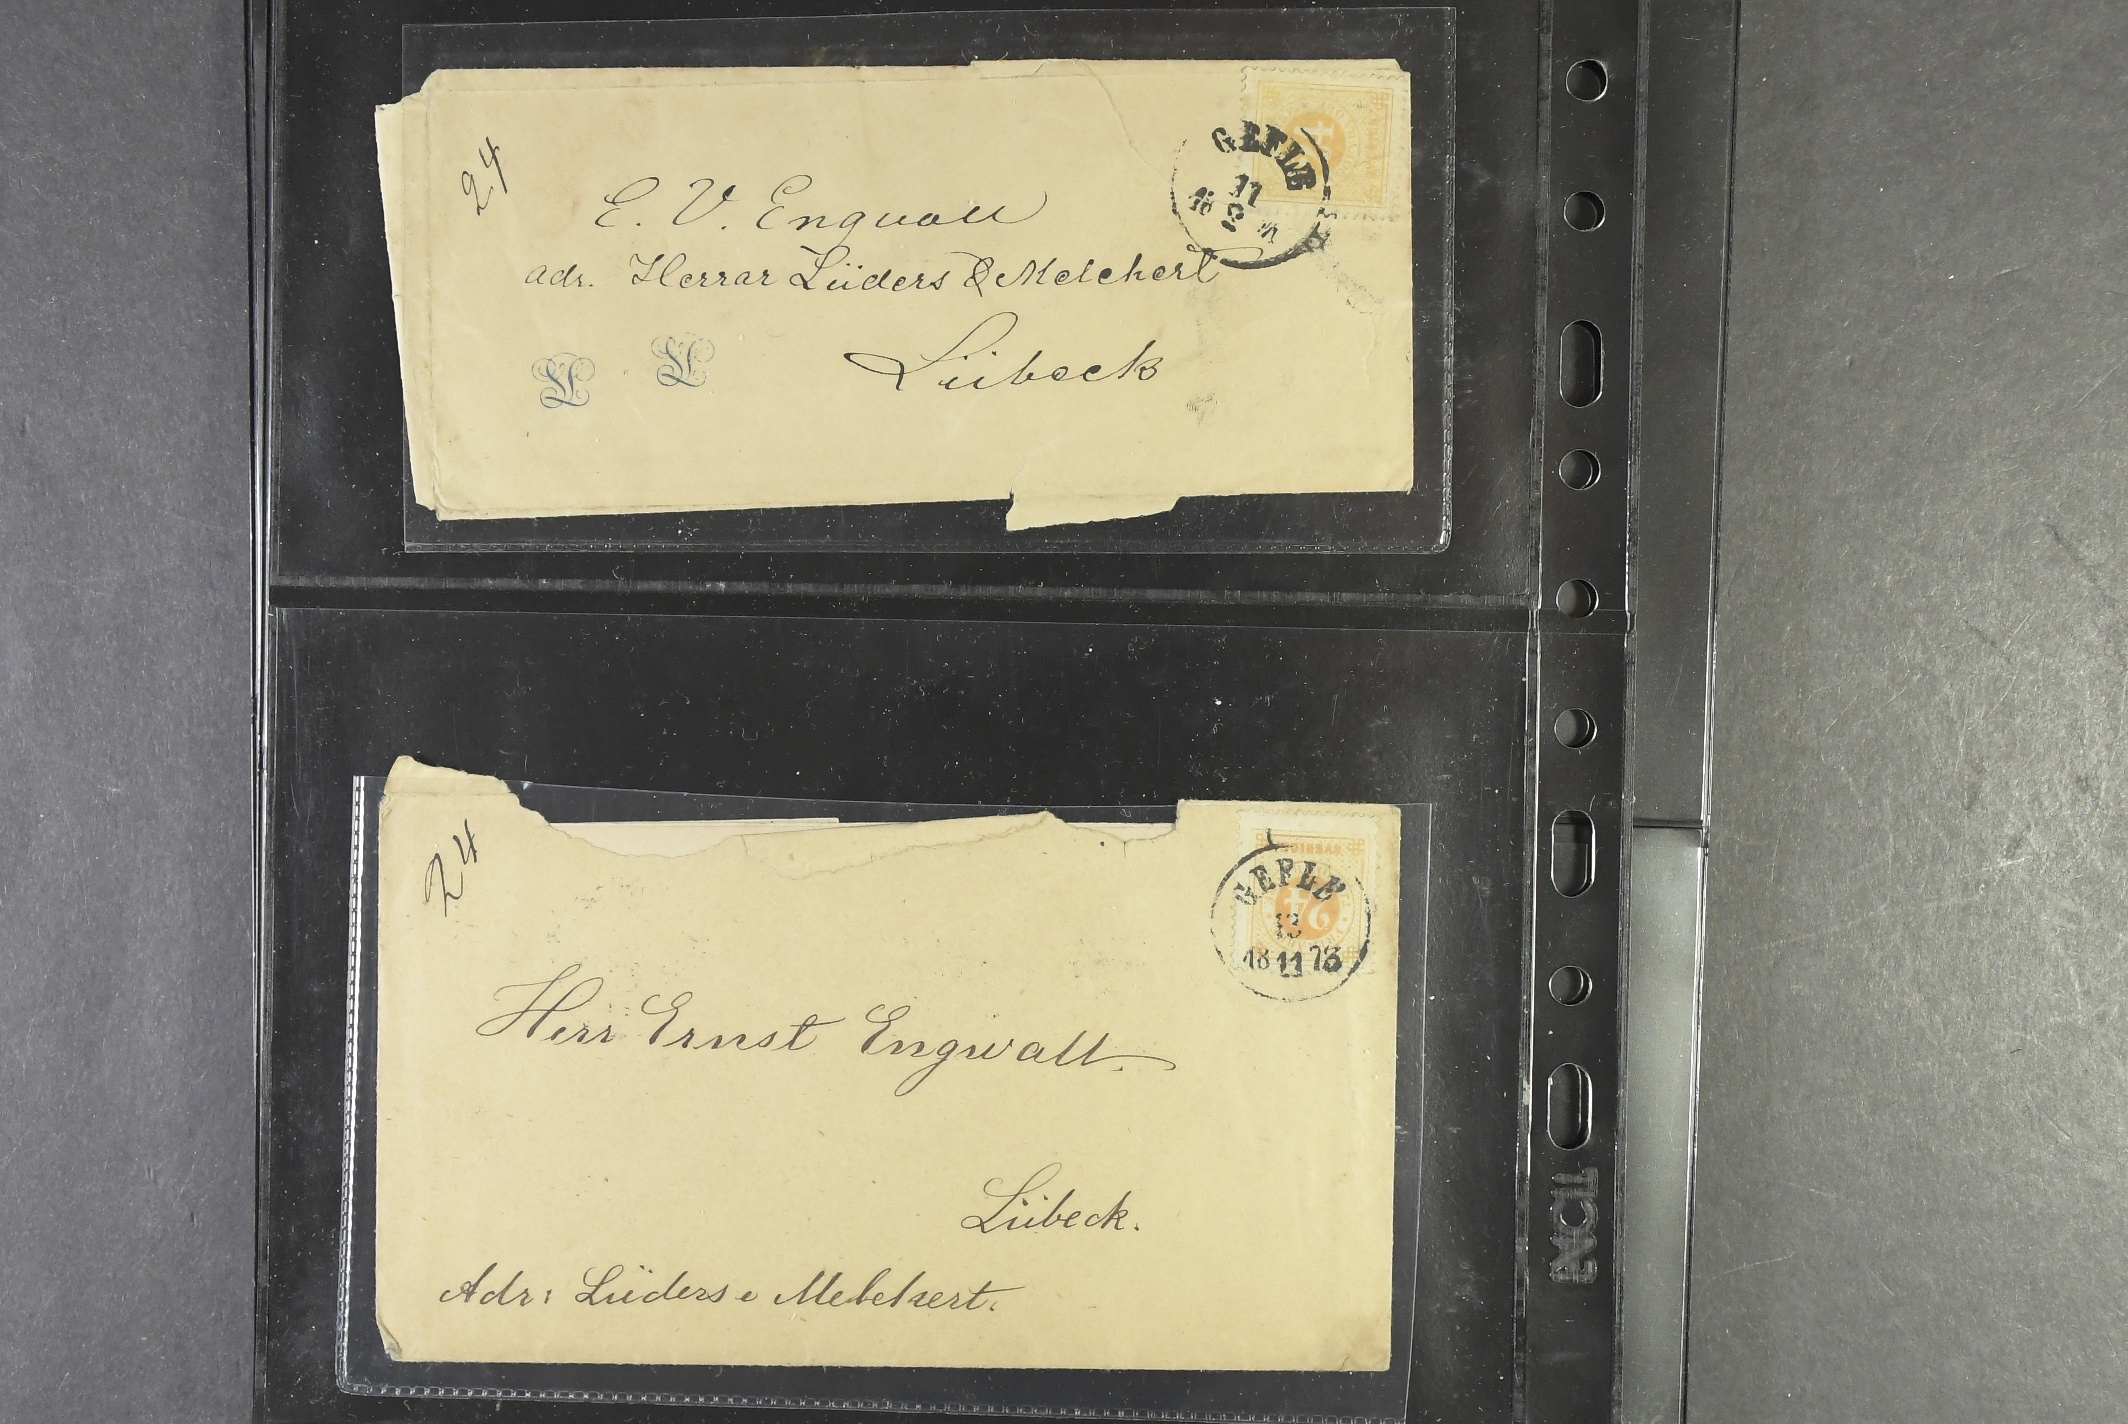 24
E. V. Engwall
adr. Herrar Lüders & Melchert
Lübeck
GEFLE
11
18
24
GEFLE
13
18 11 73
SVERIGE
24
Herr Ernst Engwall.
Lübeck.
Adr: Lüders & Melchert.